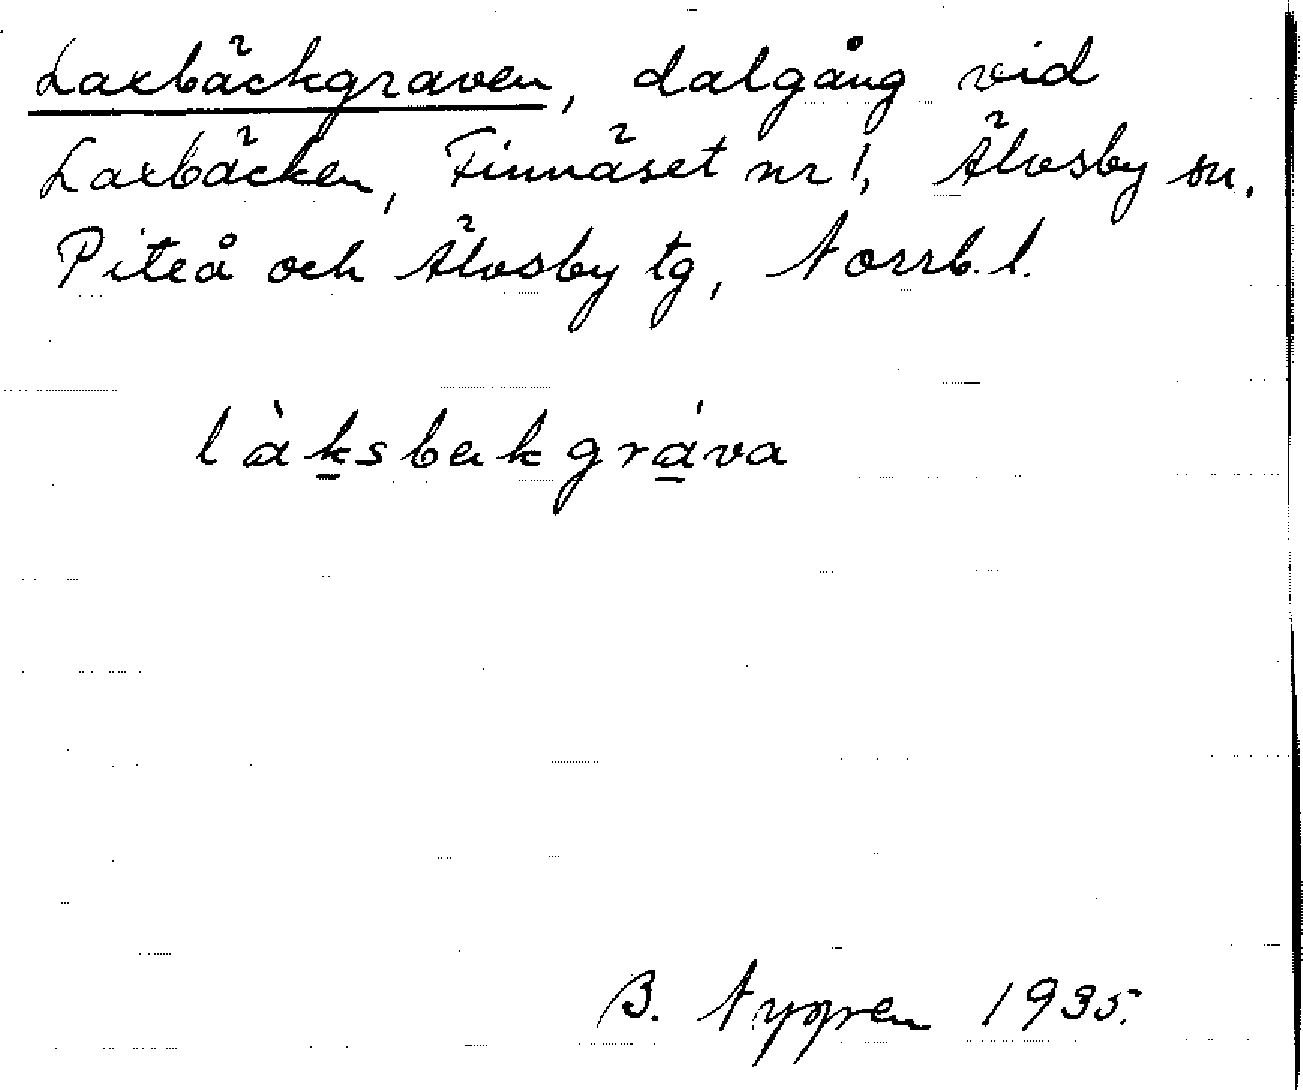 Laxbäckgraven, dalgång vid
Laxbäcken, Finnäset nr 1, Älvsby sn.
Piteå och Älvsby tg, Norrb. l.
làksbakgráva
B. Nygren 1935.